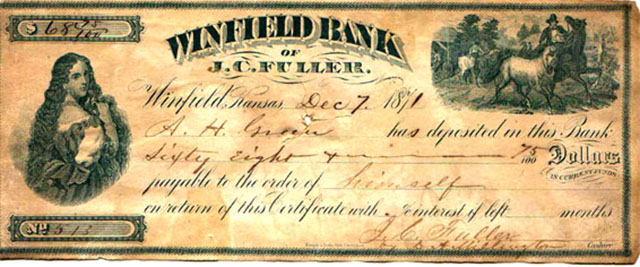 $68 75/100
WINFIELD BANK
OF
J.C. FULLER.
Winfield, Kansas, Dec 7 1871
A. H. Green has deposited in this Bank
Sixty Eight & 75/100 Dollars
IN CURRENT FUNDS
payable to the order of himself
on return of this Certificate with interest if left months
J. C. Fuller
by Millington Cashier
No. 513